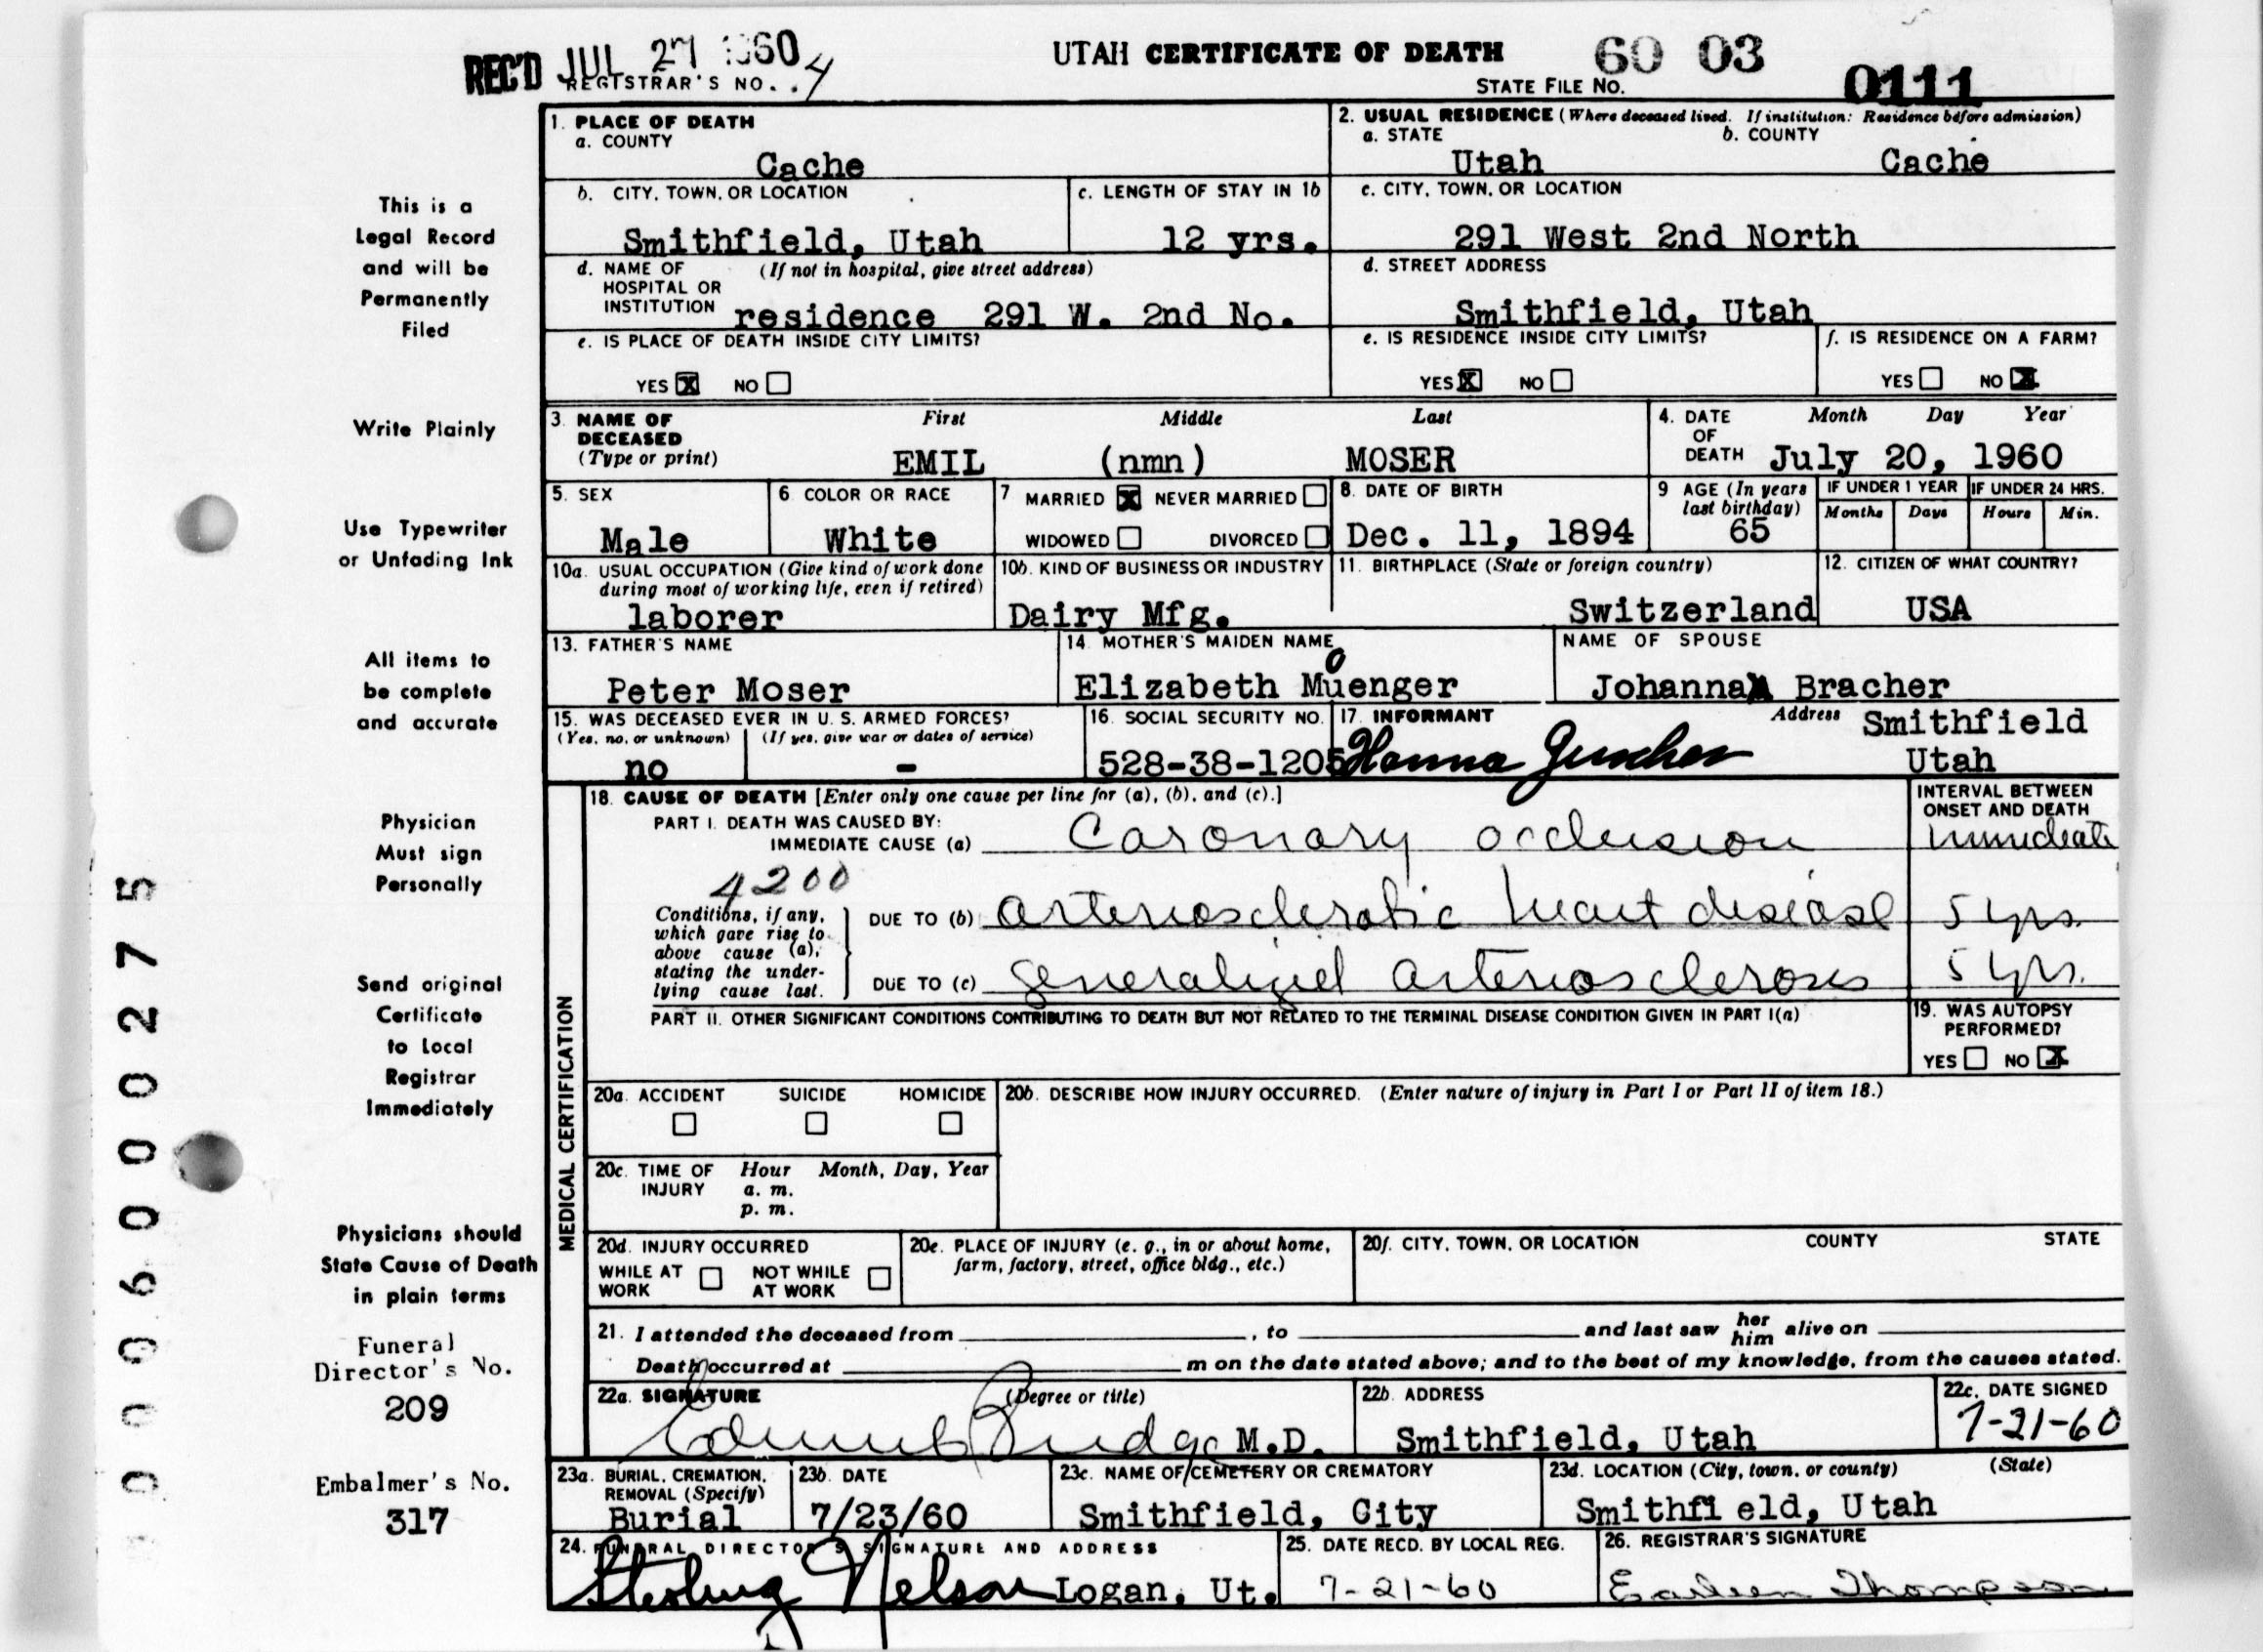 REC'D JUL 27 1960
UTAH CERTIFICATE OF DEATH 60 03
REGISTRAR'S NO. . 4
STATE FILE NO. 0111
1. PLACE OF DEATH
a. COUNTY
Cache
2. USUAL RESIDENCE (Where deceased lived. If institution: Residence before admission)
a. STATE b. COUNTY
Utah Cache
b. CITY, TOWN, OR LOCATION
Smithfield, Utah
c. LENGTH OF STAY IN 1b
12 yrs.
c. CITY, TOWN, OR LOCATION
291 West 2nd North
d. NAME OF (If not in hospital, give street address)
HOSPITAL OR
INSTITUTION residence 291 W. 2nd No.
d. STREET ADDRESS
Smithfield, Utah
e. IS PLACE OF DEATH INSIDE CITY LIMITS?
YES X NO
e. IS RESIDENCE INSIDE CITY LIMITS?
YES X NO
f. IS RESIDENCE ON A FARM?
YES NO X
3. NAME OF First Middle Last
DECEASED
(Type or print) EMIL (nmn) MOSER
4. DATE Month Day Year
OF
DEATH July 20, 1960
5. SEX
Male
6. COLOR OR RACE
White
7 MARRIED X NEVER MARRIED
WIDOWED DIVORCED
8. DATE OF BIRTH
Dec. 11, 1894
9 AGE (In years
last birthday)
65
IF UNDER 1 YEAR IF UNDER 24 HRS.
Months Days Hours Min.
10a. USUAL OCCUPATION (Give kind of work done
during most of working life, even if retired)
laborer
10b. KIND OF BUSINESS OR INDUSTRY
Dairy Mfg.
11. BIRTHPLACE (State or foreign country)
Switzerland
12. CITIZEN OF WHAT COUNTRY?
USA
13. FATHER'S NAME
Peter Moser
14. MOTHER'S MAIDEN NAME
o
Elizabeth Muenger
NAME OF SPOUSE
Johanna Bracher
15. WAS DECEASED EVER IN U. S. ARMED FORCES?
(Yes, no, or unknown) (If yes, give war or dates of service)
no -
16. SOCIAL SECURITY NO.
528-38-1205
17. INFORMANT Address Smithfield
Hanna Utah
MEDICAL CERTIFICATION
18. CAUSE OF DEATH [Enter only one cause per line for (a), (b), and (c).]
INTERVAL BETWEEN
ONSET AND DEATH
PART I. DEATH WAS CAUSED BY:
IMMEDIATE CAUSE (a) Caronary occlusion immediate
4200
Conditions, if any,
which gave rise to
above cause (a),
stating the under-
lying cause last.
DUE TO (b) arteriosclerotic heart disease 5 yrs.
DUE TO (c) generalized arteriosclerosis 5 yrs.
PART II. OTHER SIGNIFICANT CONDITIONS CONTRIBUTING TO DEATH BUT NOT RELATED TO THE TERMINAL DISEASE CONDITION GIVEN IN PART I(a)
19. WAS AUTOPSY
PERFORMED?
YES NO X
20a. ACCIDENT SUICIDE HOMICIDE
20b. DESCRIBE HOW INJURY OCCURRED. (Enter nature of injury in Part I or Part II of item 18.)
20c. TIME OF Hour Month, Day, Year
INJURY a. m.
p. m.
20d. INJURY OCCURRED
WHILE AT NOT WHILE
WORK AT WORK
20e. PLACE OF INJURY (e. g., in or about home,
farm, factory, street, office bldg., etc.)
20f. CITY, TOWN, OR LOCATION COUNTY STATE
21. I attended the deceased from , to and last saw her him alive on
Death occurred at m on the date stated above; and to the best of my knowledge, from the causes stated.
22a. SIGNATURE (Degree or title)
M.D.
22b. ADDRESS
Smithfield, Utah
22c. DATE SIGNED
7-21-60
23a. BURIAL, CREMATION,
REMOVAL (Specify)
Burial
23b. DATE
7/23/60
23c. NAME OF CEMETERY OR CREMATORY
Smithfield, City
23d. LOCATION (City, town, or county) (State)
Smithfi eld, Utah
24. FUNERAL DIRECTOR'S SIGNATURE AND ADDRESS
Sterling Nelson Logan, Ut.
25. DATE RECD. BY LOCAL REG.
7-21-60
26. REGISTRAR'S SIGNATURE
Earleen Thompson
This is a
Legal Record
and will be
Permanently
Filed
Write Plainly
Use Typewriter
or Unfading Ink
All items to
be complete
and accurate
Physician
Must sign
Personally
Send original
Certificate
to Local
Registrar
Immediately
Physicians should
State Cause of Death
in plain terms
Funeral
Director's No.
209
Embalmer's No.
317
00096000275